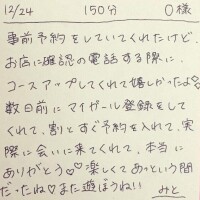 12/24 150分 O様
事前予約をしていてくれたけど、
お店に確認の電話する際に、
コースアップしてくれて嬉しかったよ♡
数日前にマイガール登録をして
くれて、割とすぐ予約を入れて、実
際に会いに来てくれて、本当に
ありがとう♡♡楽しくてあっという間
だったね♡また遊ぼうね!!
みと